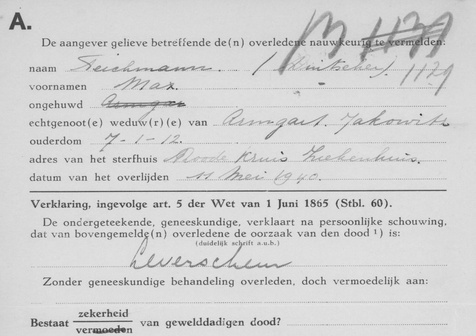 A.
1129
De aangever gelieve betreffende de(n) overledene nauwkeurig te vermelden:
naam Teichmann. (Duitscher). 1129
voornamen Max.
ongehuwd
echtgenoot(e) weduw(r)(e) van Armgart. Jakowitz
ouderdom 7-1-12.
adres van het sterfhuis Roode Kruis Ziekenhuis.
datum van het overlijden 11 Mei 1940.
Verklaring, ingevolge art. 5 der Wet van 1 Juni 1865 (Stbl. 60).
De ondergeteekende, geneeskundige, verklaart na persoonlijke schouwing,
dat van bovengemelde(n) overledene de oorzaak van den dood ¹) is:
(duidelijk schrift a.u.b.)
Leverscheur
Zonder geneeskundige behandeling overleden, doch vermoedelijk aan:
zekerheid
Bestaat vermoeden van gewelddadigen dood?